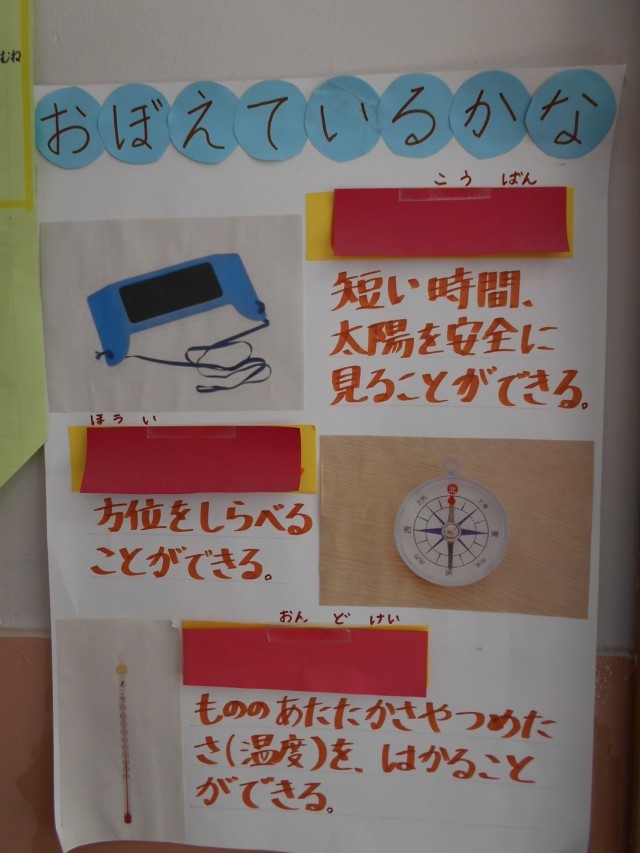 むね
おぼえているかな
こう ばん
短い時間、
太陽を安全に
見ることができる。
ほう い
方位をしらべる
ことができる。
北
西
東
おん ど けい
もののあたたかさやつめた
さ(温度)を、はかること
ができる。